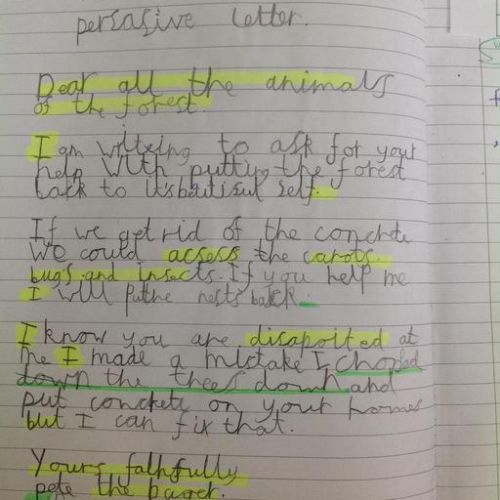 persasive letter.
Dear all the animals
of the forest.
I am writeing to ask for your
help with putting the forest
back to it's bautiful self.
If we get rid of the concrete
we could acsess the carots.
bugs and insects. If you help me
I will put the nests back.
I know you are disapoited at
me I made a mistake I choped
down the trees down and
put concrete on your homes
but I can fix that.
Yours faithfully
pete the bager.